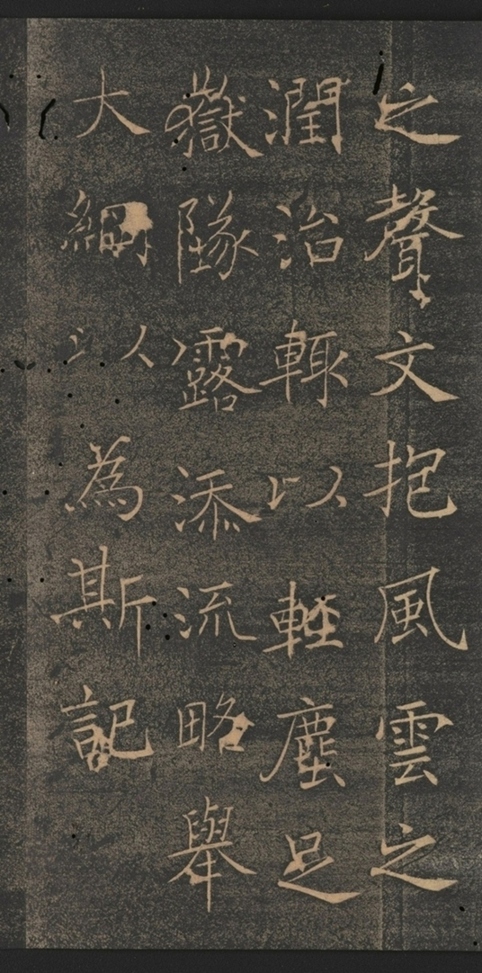 之聲文抱風雲之
潤治輙以輕塵足
嶽隊露添流略舉
大綱以為斯記